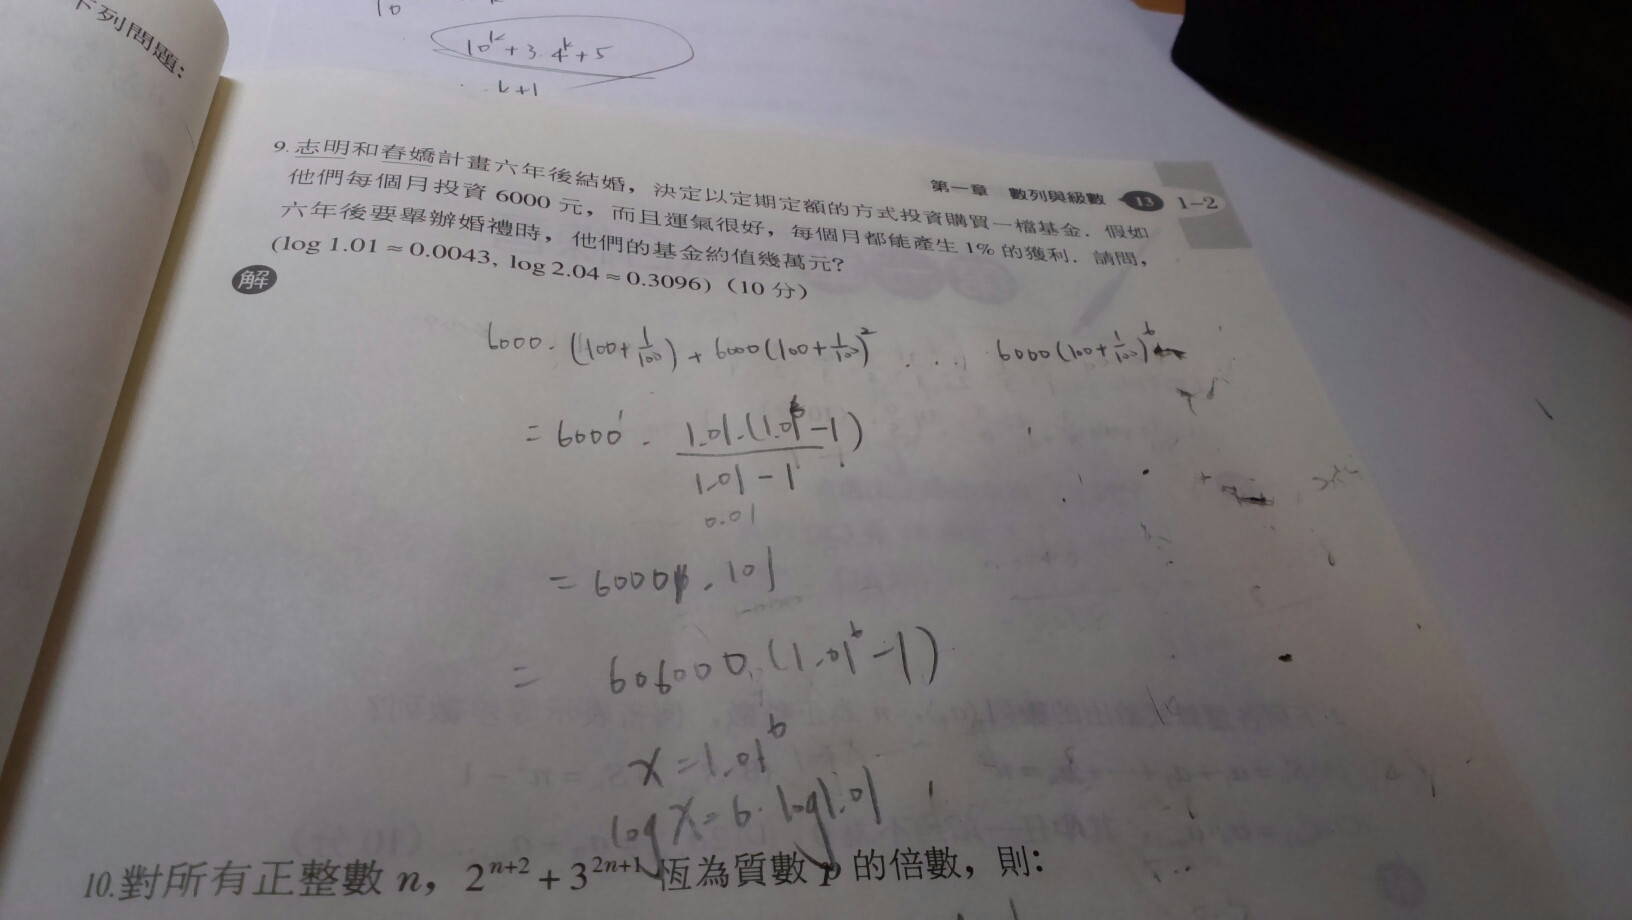 下列問題：
10
10^k+3·4^k+5
k+1
第一章 數列與級數 13 1-2
9. 志明和春嬌計畫六年後結婚，決定以定期定額的方式投資購買一檔基金．假如
他們每個月投資 6000 元，而且運氣很好，每個月都能產生 1% 的獲利．請問，
六年後要舉辦婚禮時，他們的基金約值幾萬元？
(log 1.01 ≈ 0.0043, log 2.04 ≈ 0.3096)（10 分）
解
6000·(100+1/100)+6000(100+1/100)^2 ... 6000(100+1/100)^6
=6000·1.01·(1.01^6-1)/1.01-1
0.01
=6000·101
=606000·(1.01^6-1)
x=1.01^6
log x=6·log1.01
10.對所有正整數 n，2^{n+2}+3^{2n+1} 恆為質數 p 的倍數，則：